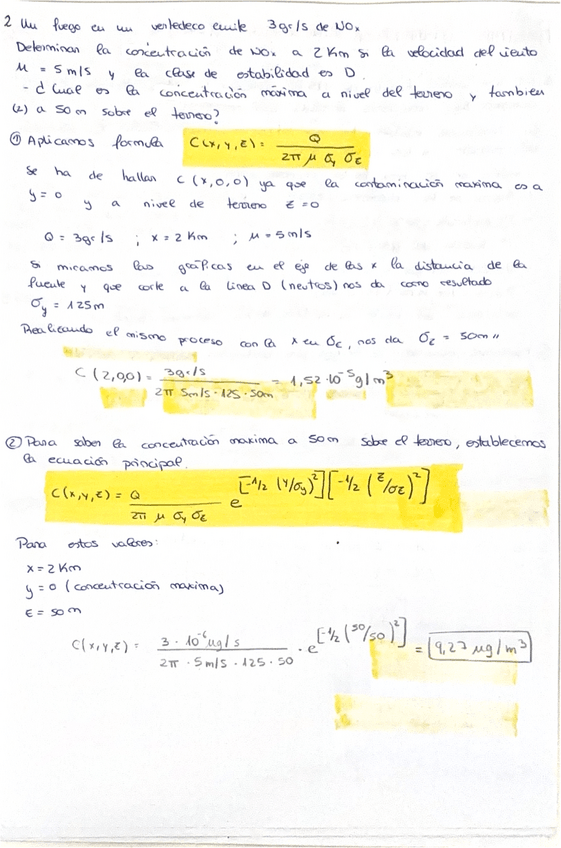 2 Un fuego en un vertedeco emite 3gr/s de NOx
Determinar la concentración de NOx a 2 Km si la velocidad del viento
μ = 5 m/s y la clase de estabilidad es D.
- ¿Cual es la concentración máxima a nivel del terreno y tambien
(2) a 50m sobre el terreno?
① Aplicamos formula C(x,y,z) = Q / 2π μ σy σz
Se ha de hallar C(x,0,0) ya que la contaminación maxima es a
y=0 y a nivel de terreno z=0
Q = 3gr/s ; x = 2 Km ; μ = 5 m/s
Si miramos las gráficas en el eje de las x la distancia de la
fuente y que corte a la linea D (neutros) nos da como resultado
σy = 125m
Realizando el mismo proceso con la x en σz, nos da σz = 50m //
C(2,0,0) = 3gr/s / 2π 5m/s · 125 · 50m = 1,52·10⁻⁵ g/m³
② Para saber la concentración maxima a 50m sobre el terreno, establecemos
la ecuación principal.
C(x,y,z) = Q / 2π μ σy σz e [-1/2 (y/σy)²][-1/2 (z/σz)²]
Para estos valores:
x = 2 Km
y = 0 (concentración maxima)
z = 50 m
C(x,y,z) = 3·10⁻⁶ μg/s / 2π · 5 m/s · 125 · 50 · e [-1/2 (50/50)²] = 9,27 μg/m³